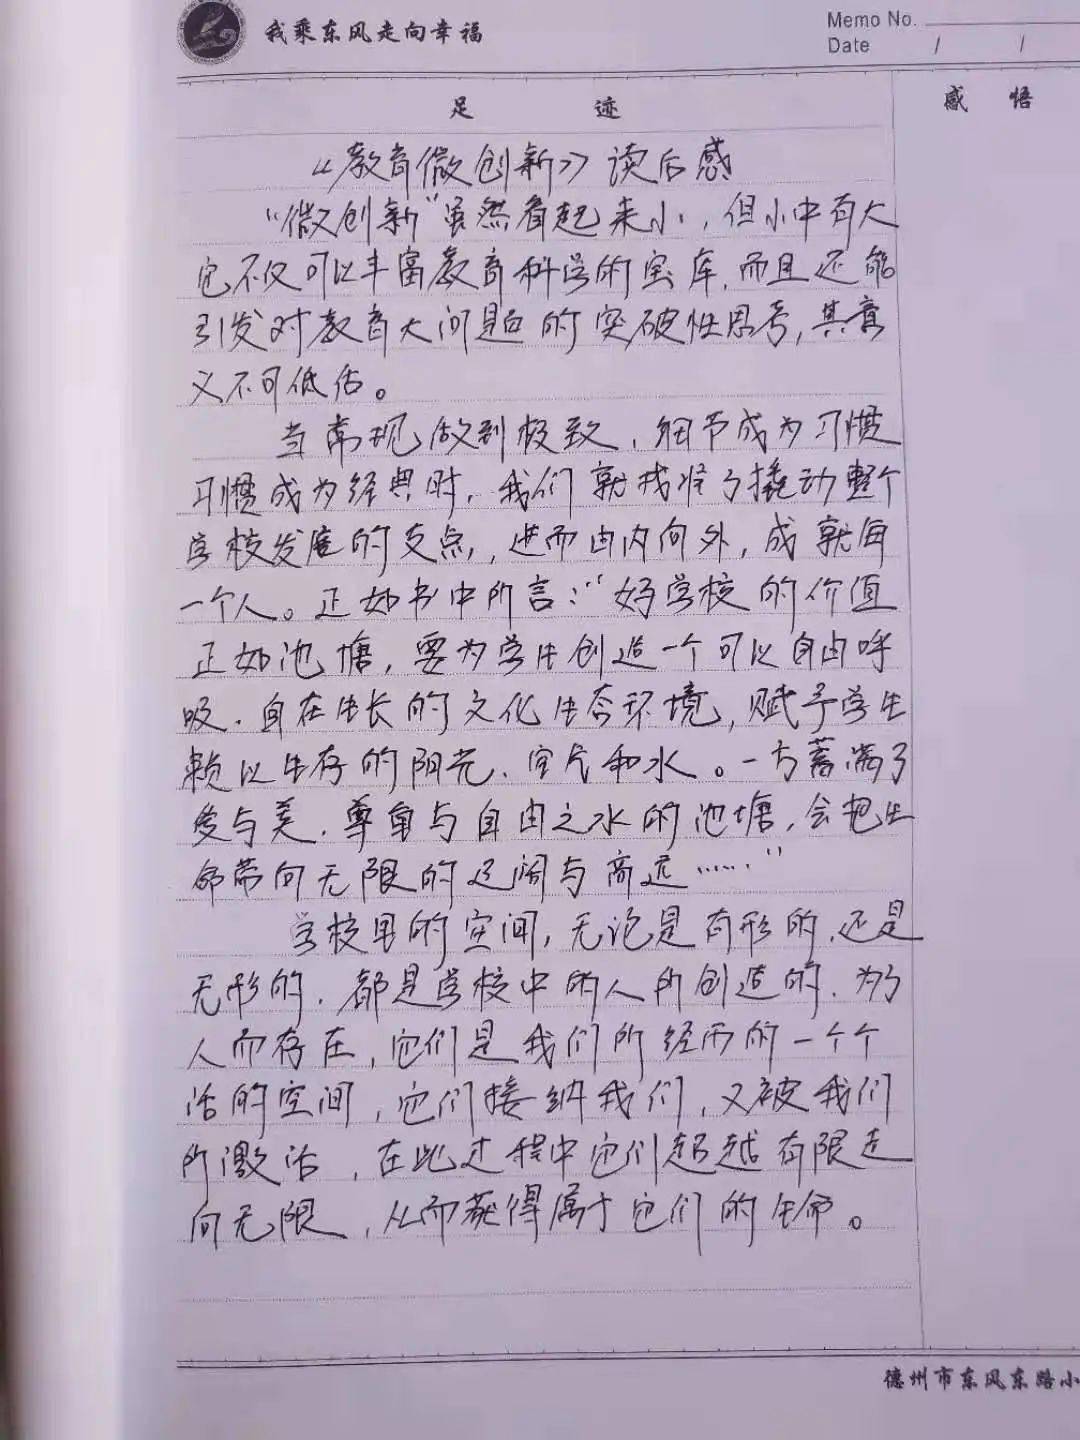 我乘东风走向幸福
Memo No.
Date / /
足 迹
感 悟
《教育微创新》读后感
“微创新”虽然看起来小，但小中有大
它不仅可以丰富教育科学的宝库，而且还能
引发对教育大问题的突破性思考，其意
义不可低估。
当常规做到极致，细节成为习惯
习惯成为经典时，我们就找准了撬动整个
学校发展的支点，进而由内向外，成就每
一个人。正如书中所言：“好学校的价值
正如池塘，要为学生创造一个可以自由呼
吸、自在生长的文化生态环境，赋予学生
赖以生存的阳光、空气和水。一方蓄满了
爱与美、尊重与自由之水的池塘，会把生
命带向无限的辽阔与高远……”
学校里的空间，无论是有形的，还是
无形的，都是学校中的人所创造的，为了
人而存在，它们是我们所经历的一个个
活的空间，它们接纳我们，又被我们
所激活，在此过程中它们超越有限走
向无限，从而获得属于它们的生命。
德州市东风东路小